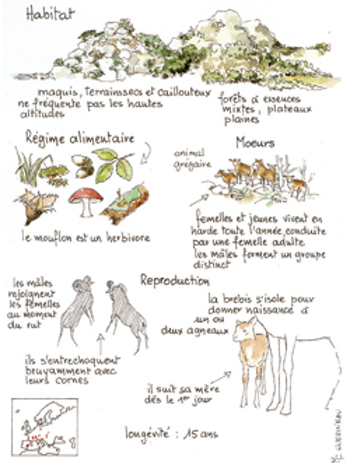 Habitat
maquis, terrainssecs et caillouteux
ne fréquente pas les hautes
altitudes
forêts à essences
mixtes, plateaux
plaines
Régime alimentaire
le mouflon est un herbivore
Moeurs
animal
grégaire
femelles et jeunes vivent en
harde toute l'année, conduite
par une femelle adulte
les mâles forment un groupe
distinct
Reproduction
les mâles
rejoignent
les femelles
au moment
du rut
ils s'entrechoquent
bruyamment avec
leurs cornes
la brebis s'isole pour
donner naissance à
un ou
deux agneaux
il suit sa mère
dès le 1er jour
longévité : 15 ans